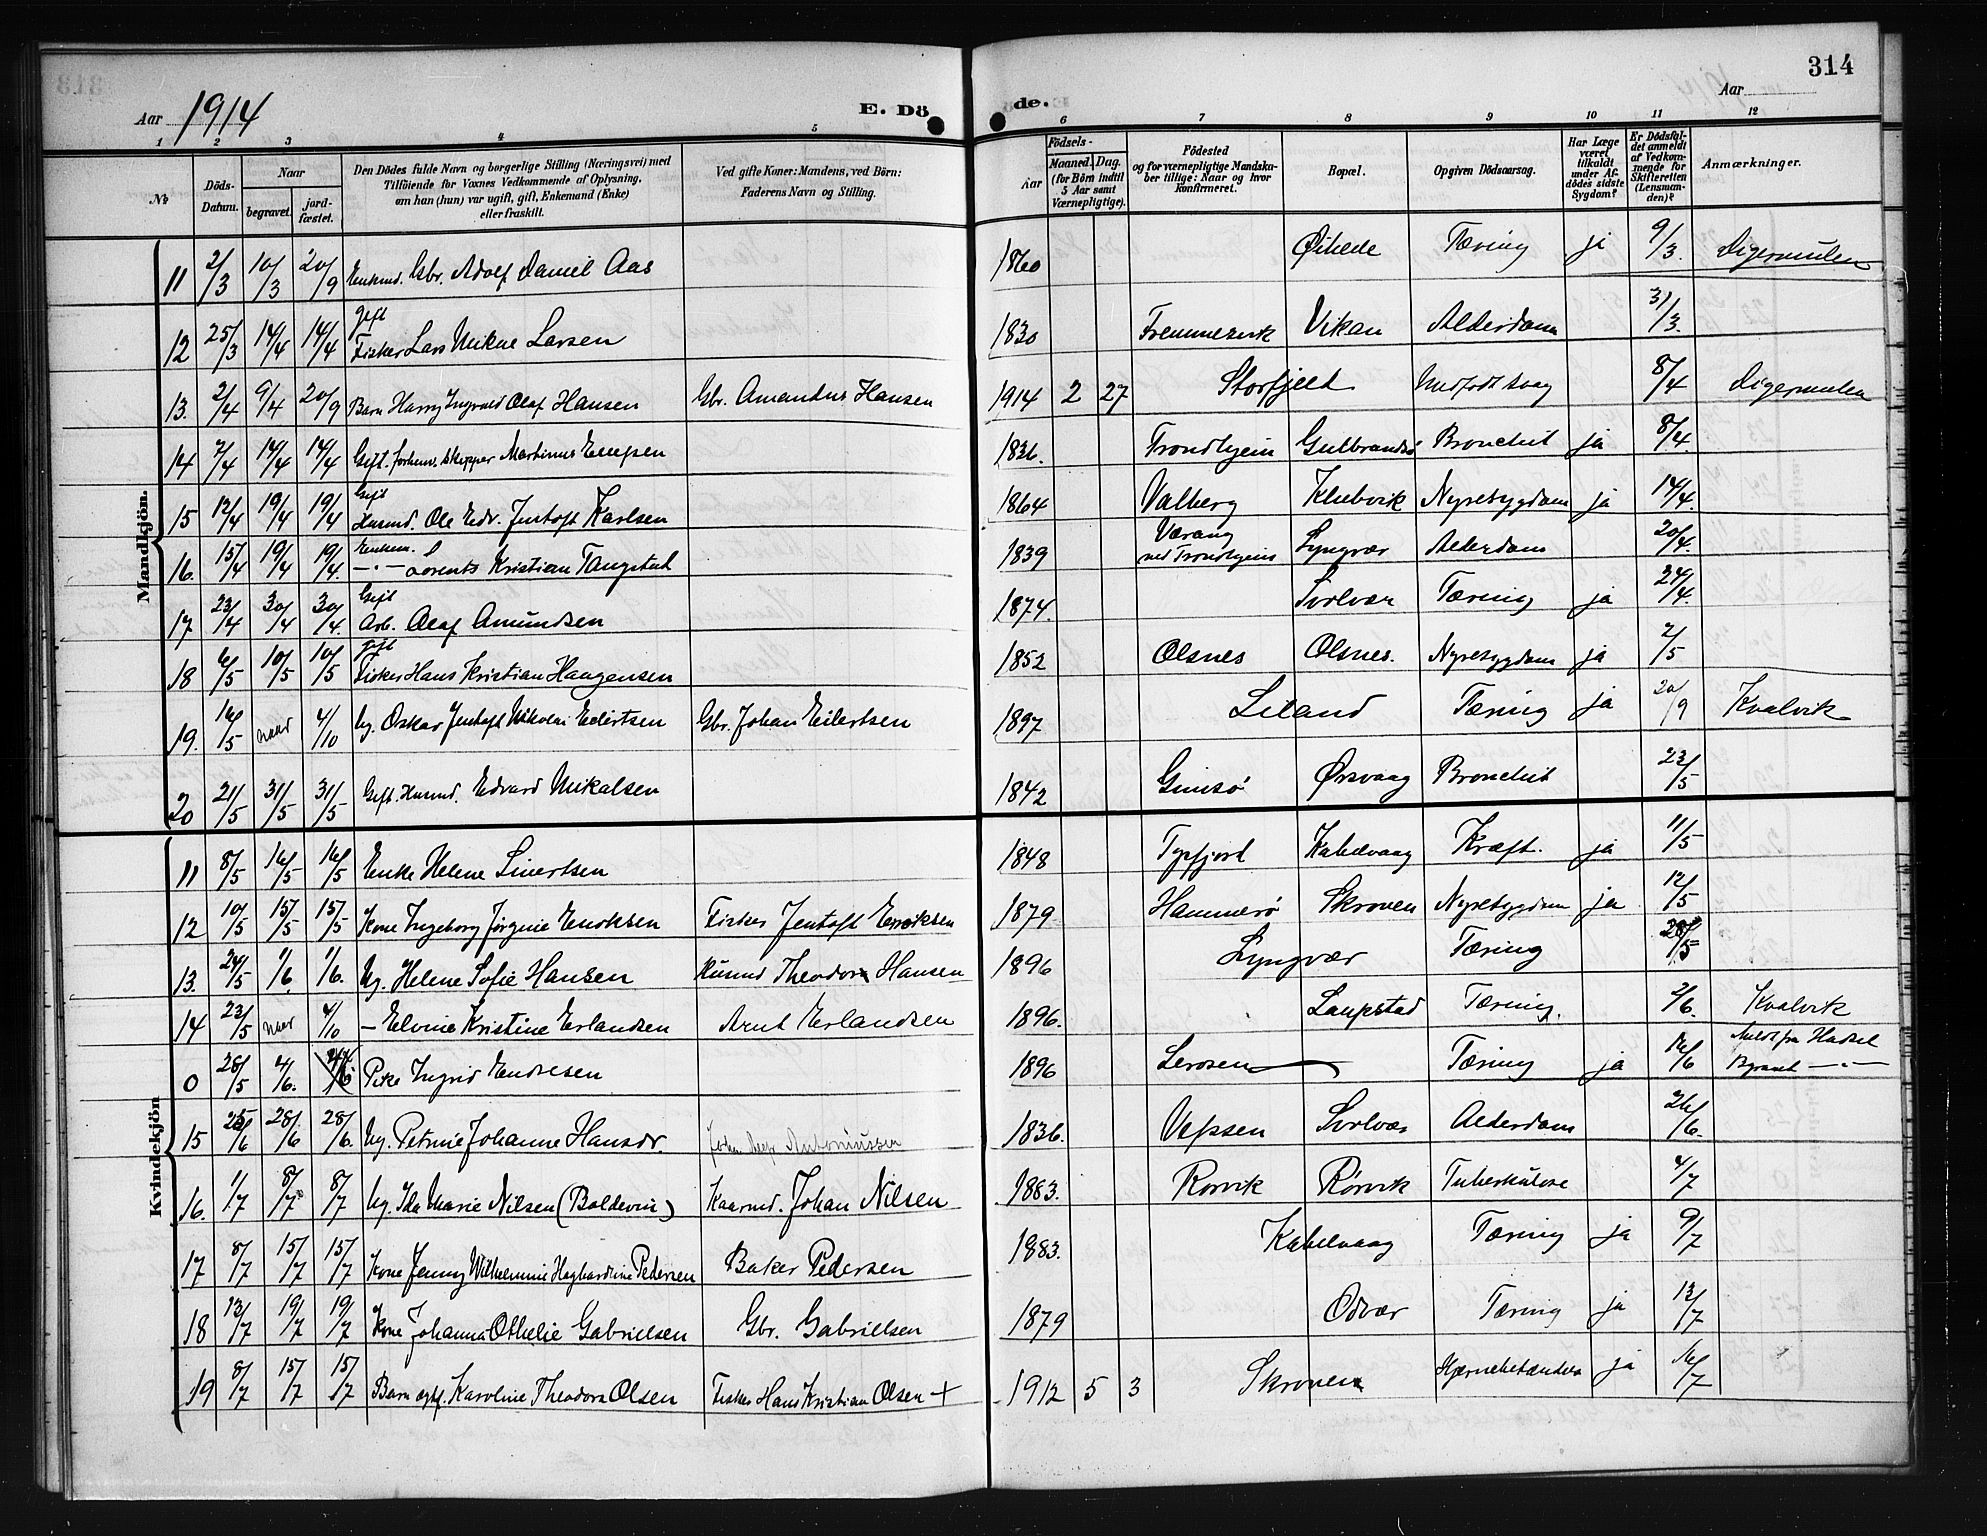 314
Aar 1914
E. Döde.
Aar
1 2 3 4 5 6 7 8 9 10 11 12
No
Döds-Datum.
Naar
begravet.
jordfæstet.
Den Dödes fulde Navn og borgerlige Stilling (Næringsvei) med Tilföiende for Voxnes Vedkommende af Oplysning, om han (hun) var ugift, gift, Enkemand (Enke) eller fraskilt.
Ved gifte Koner: Mandens, ved Börn: Faderens Navn og Stilling.
Födsels-
Aar
Maaned. Dag.
(for Börn indtil 5 Aar samt Værnepligtige).
Födested og for værnepligtige Mandskaber tillige: Naar og hvor konfirmeret.
Bopæl.
Opgiven Dödsaarsag.
Har Læge været tilkaldt under Afdödes sidste Sygdom?
Er Dödsfaldet anmeldt af Vedkommende for Skifteretten (Lensmanden)?
Anmærkninger.
Mandkjön.
11 2/3 10/3 20/9 Enkemd. Gbr. Adolf Daniel Aas 1860 Tæring ja 9/3 Digermulen
12 25/3 14/4 14/4 gift Fisker Lars Mikae Larsen 1830 Vikan Alderdom 31/3
13. 2/4 9/4 20/9 Barn Harry Ingvald Olaf Hansen Gbr. Amandus Hansen 1914 2 27 Storfjeld Medfødt svag 8/4 Digermulen
14 7/4 14/4 14/4 Gift. forhenv. skipper Martinus 1836. Trondhjem Gulbrandsö Bronchit ja 8/4.
15 12/4 19/4 19/4 Gift Husmd. Ole Edv. Jentoft Karlsen 1864 Valberg Klubvik Nyresygdom ja 14/4.
16. 15/4 19/4 19/4. Enkem. —"— Lorents Kristian Tangstad 1839 ved Trondhjem Lyngvær Alderdom 20/4.
17 23/4 30/4 30/4. Gift Arb. Olaf Amundsen 1874. Svolvær Tæring ja 24/4.
18 6/5 10/5 10/5 gift Fisker Hans Kristian Haugensen 1852 Olsnes Olsnes. Nyresygdom ja 7/5
19. 16/5 4/10 Ug. Oskar Jentoft Nikolai Eilertsen Gbr. Johan Eilertsen 1897 Liland Tæring ja 20/9 Kvalvik
20 21/5 31/5 31/5 Gift. Husmd. Edvard Mikalsen 1842 Gimsö Ørsvaag Bronchit 23/5
Kvindekjön
11 8/5 16/5 16/5 Enke Helene Sivertsen 1848 Kabelvaag Kræft. ja 11/5
12 10/5 15/5 15/5 Kone Ingeborg Jørgine Enoksen Fisker Jentoft Enoksen 1879. Hammerø Skroven Nyresygdom ja 12/5
13. 24/5 1/6. 1/6. Ug. Helene Sofie Hansen Husmd Theodor Hansen 1896 Lyngvær Tæring
14 23/5 4/10 — Elvine Kristine Erlandsen Arnt Erlandsen 1896. Laupstad Tæring. 2/6. Kvalvik
0 28/5 4/6. Pike Ingrid Endresen 1896 Tæring ja 16/6 Meldt fra Hadsel
15 28/6 28/6. Ug. Petrine Johanne Hansdr. Antoniussen 1836. Vefsen Svolvær Alderdom 26/6.
16. 1/7 8/7 8/7 Ug. Ida Marie Nilsen (Boldevin) Johan Nilsen 1883. Rørvik Rørvik Tuberkulose 4/7
17 8/7 15/7 15/7 Kone Jenny Wilhelmine Hagbardine Pedersen Baker Pedersen 1883. Kabelvaag Tæring ja 9/7
18 13/7 19/7 19/7 Kone Johanna Othelie Gabrielsen Gbr. Gabrielsen 1879 Odvær Tæring ja 13/7
19 8/7 15/7 15/7 Barn ægtf. Karoline Theodora Olsen Fisker Hans Kristian Olsen + 1912 5 3 Skroven ja 16/7